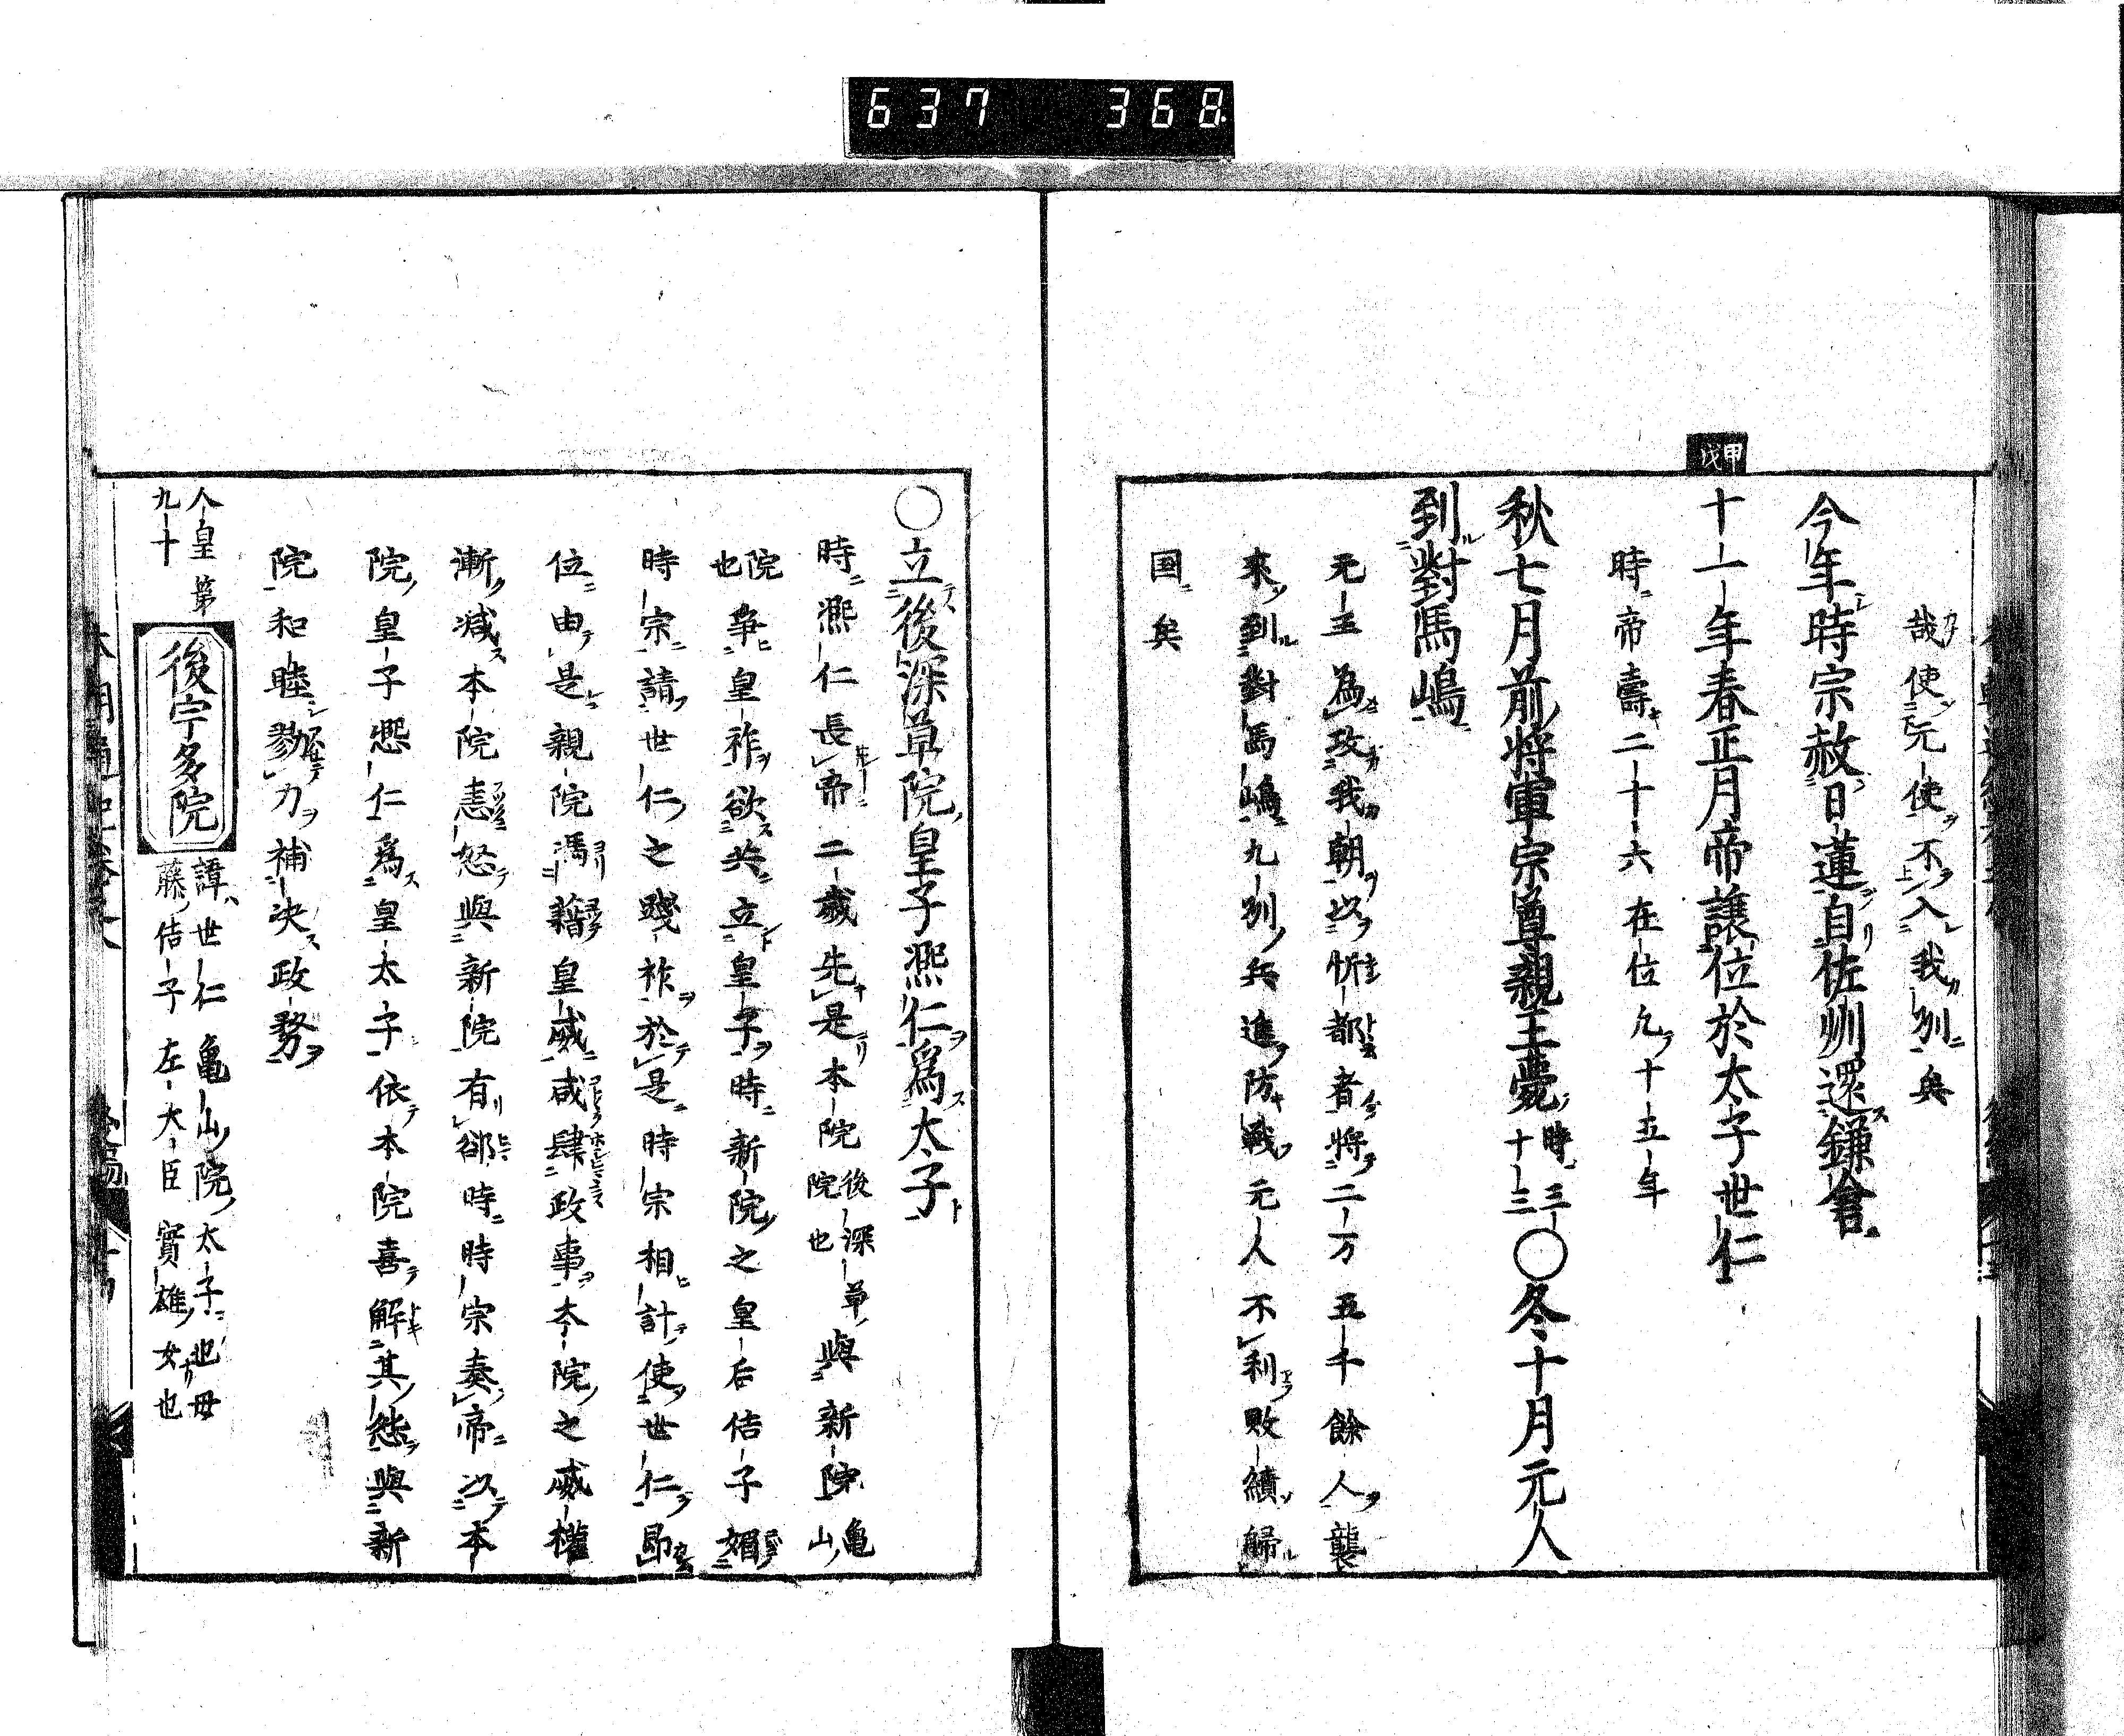 637 368
哉使元使不入我州矣
今年時宗赦日蓮自佐州還鎌倉
甲戌
十一年春正月帝譲位於太子世仁
時帝壽二十六在位九十五年
秋七月前將軍宗尊親王薨時三十三○冬十月元人
到對馬嶋
元主為攻我朝以忻都者將二万五千餘人襲
來到對馬嶋九州兵進防戰元人不利敗績歸
国矣
○立後深草院皇子熈仁爲太子
時熈仁長帝二歳先是本院後深草院也與新院亀山
院也爭皇祚欲共立皇子時新院之皇后佶子媚
時宗請世仁之踐祚於是時宗相計使世仁即
位由是親院馮籍皇威咸肆政事夲院之威權
漸減本院恚怒與新院有郤時時宗奏帝以本
院皇子熈仁爲皇太子依本院喜解其愁與新
院和睦勠力補决政務
人皇第九十
後宇多院
諱世仁亀山院太子也母
藤佶子左大臣實雄女也